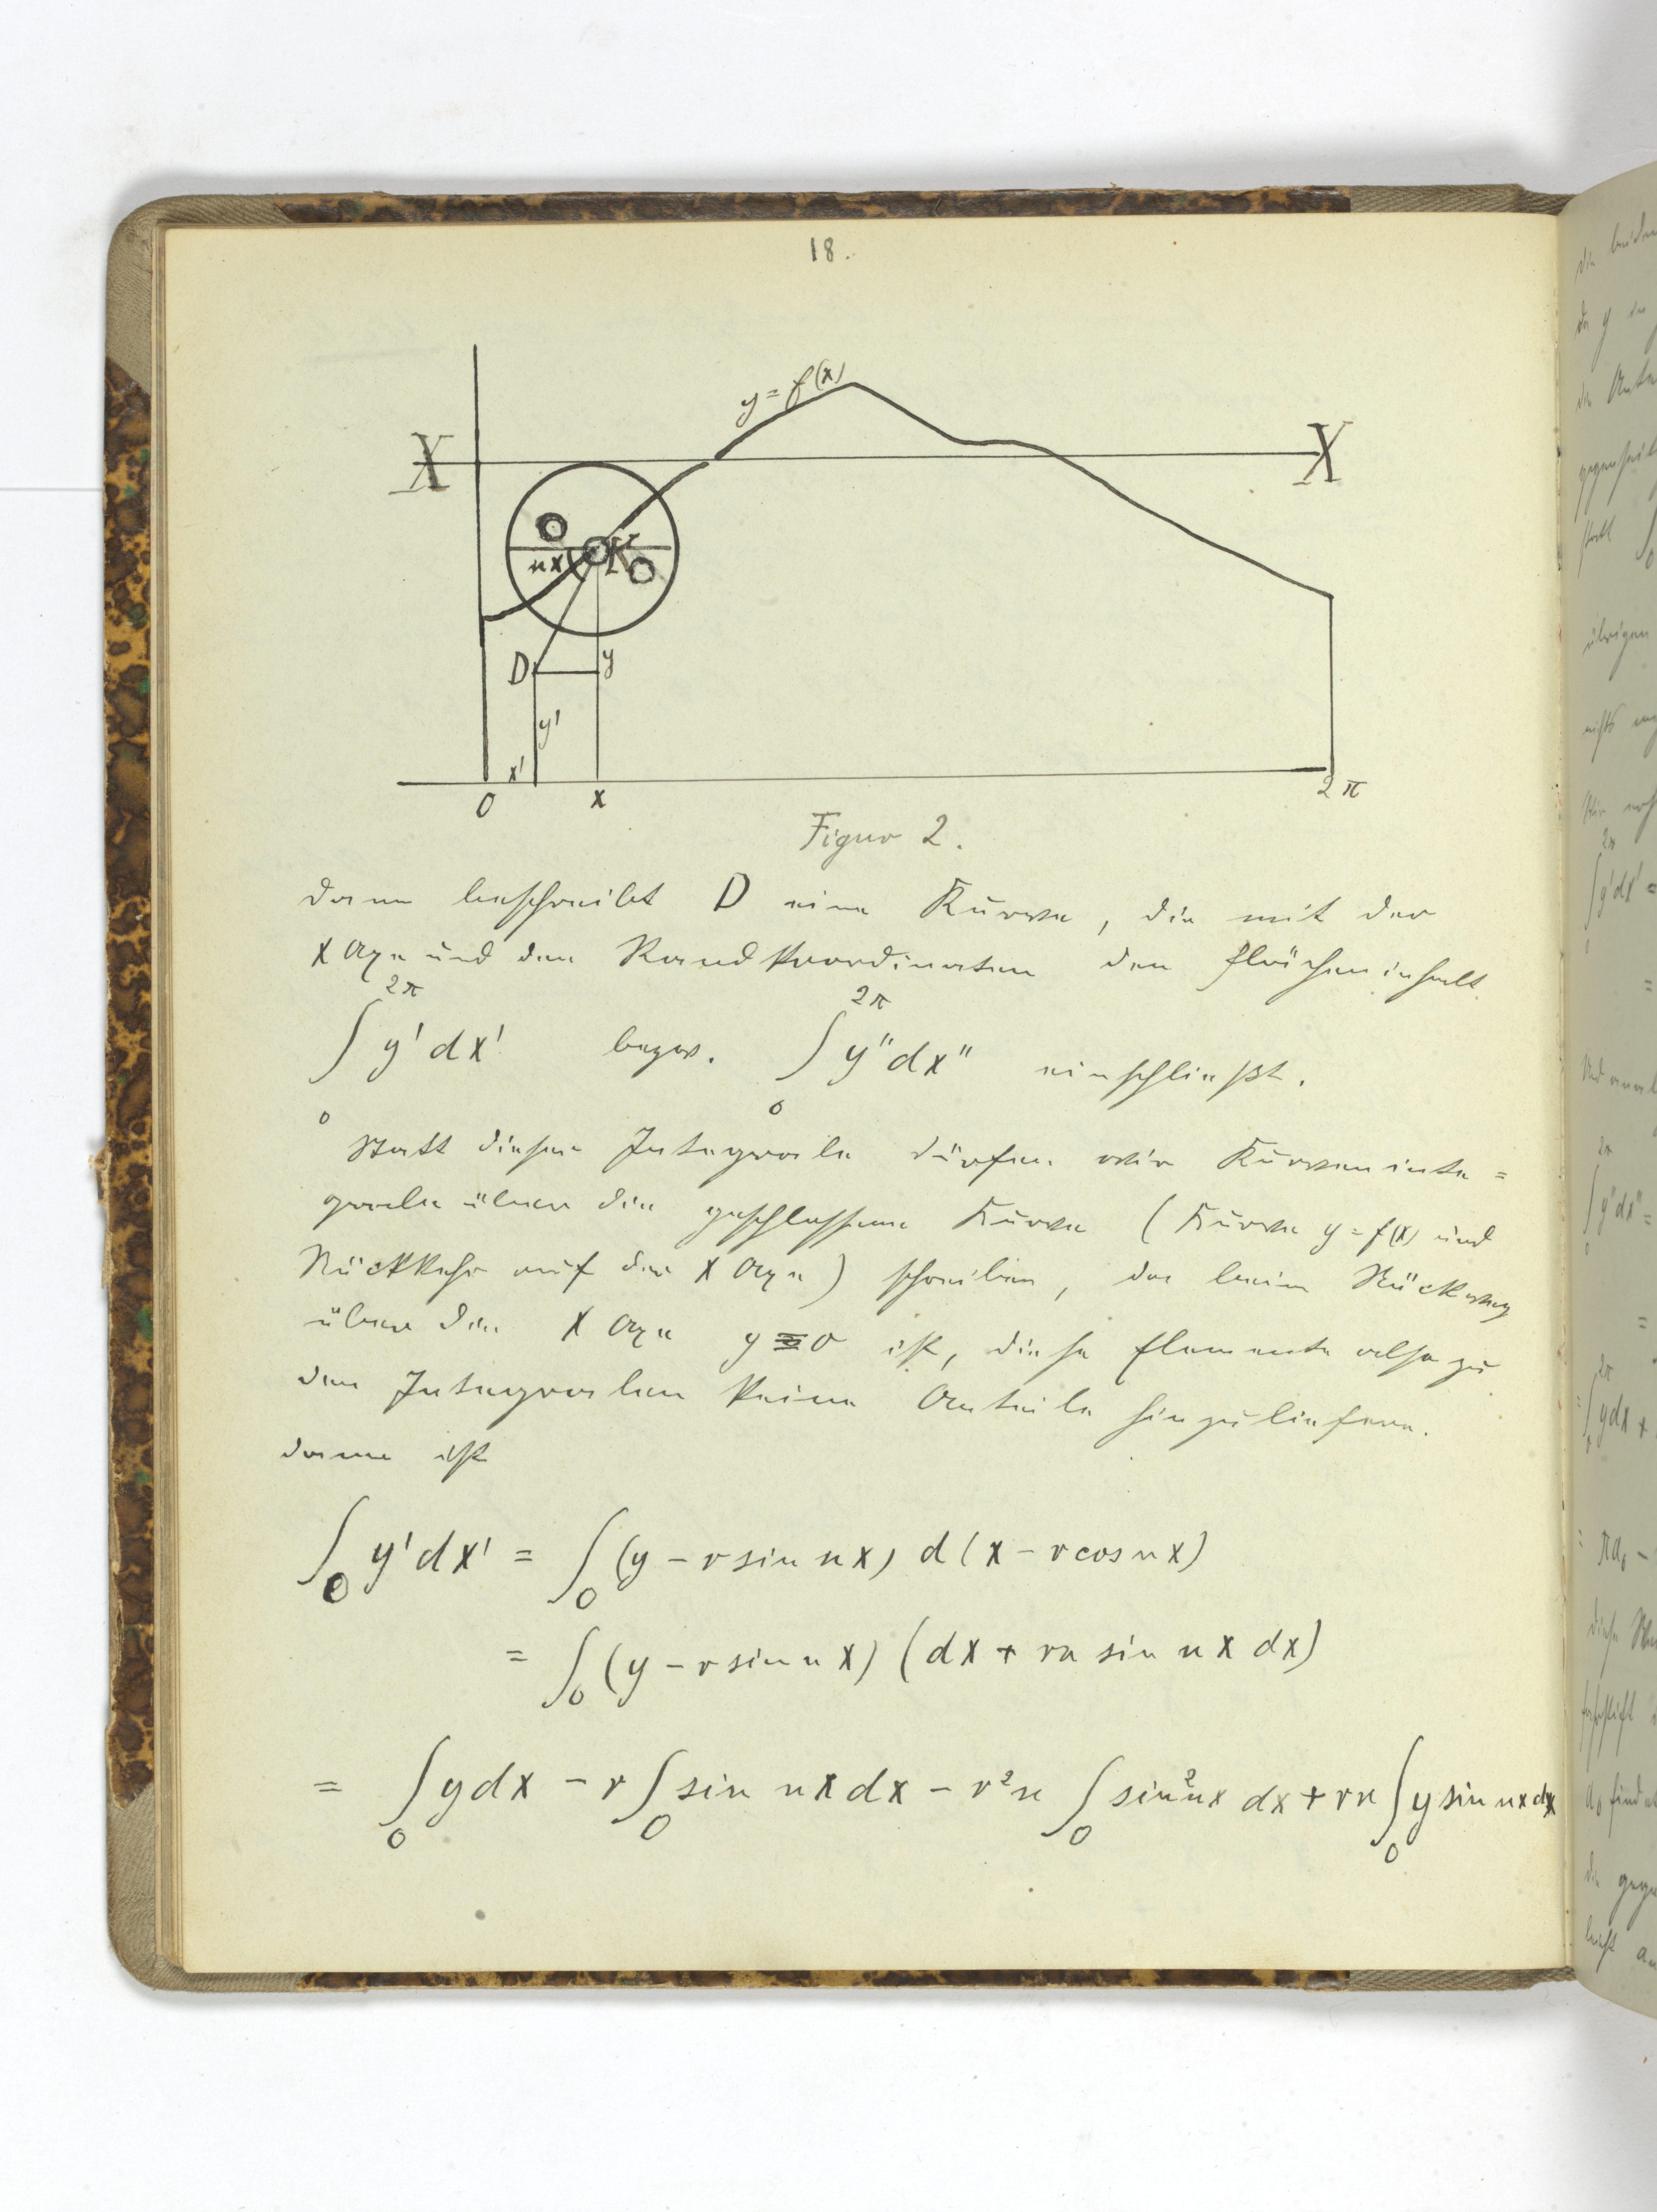 18.
y = f(x)
X X
nx K
D y
y'
x'
0 x 2π
Figur 2.
dann beschreibt D eine Kurve, die mit der
X Axe und den Randkoordinaten den Flächeninhalt
∫₀^2π y'dx' bezw. ∫₀^2π y"dx" einschließt.
Statt dieser Integrale dürfen wir Kurveninte=
grale über die geschlossene Kurve (Kurve y = f(x) und
Rückkehr auf der X Axe) schreiben, da beim Rückweg
über die X Axe y ≡ 0 ist, diese Elemente also zu
den Integralen keine Anteile hinzuliefern.
dann ist
∫₀ y'dx' = ∫₀ (y – r sin nx) d(x – r cos nx)
= ∫₀ (y – r sin nx) (dx + rn sin nx dx)
= ∫₀ y dx – r ∫₀ sin nx dx – r²n ∫₀ sin² nx dx + rn ∫₀ y sin nx dx